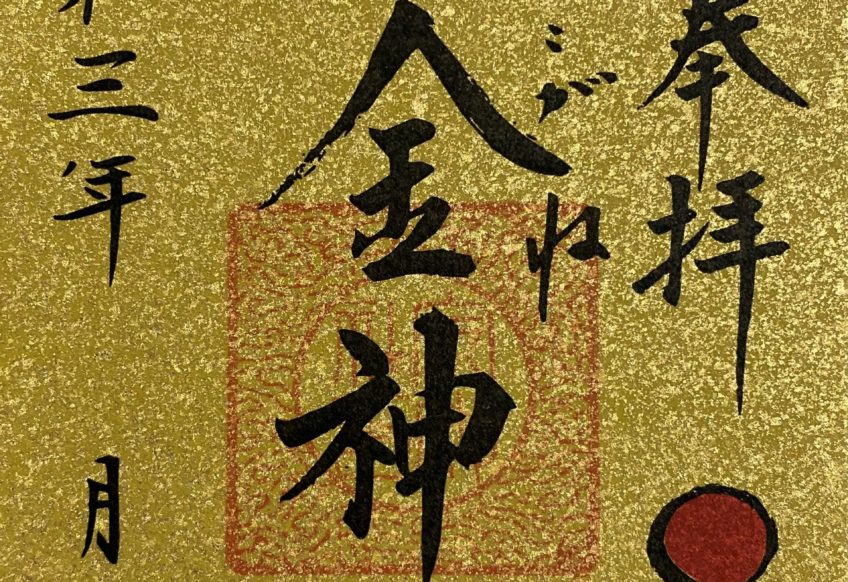 奉拝
こがね
金神
三年 月